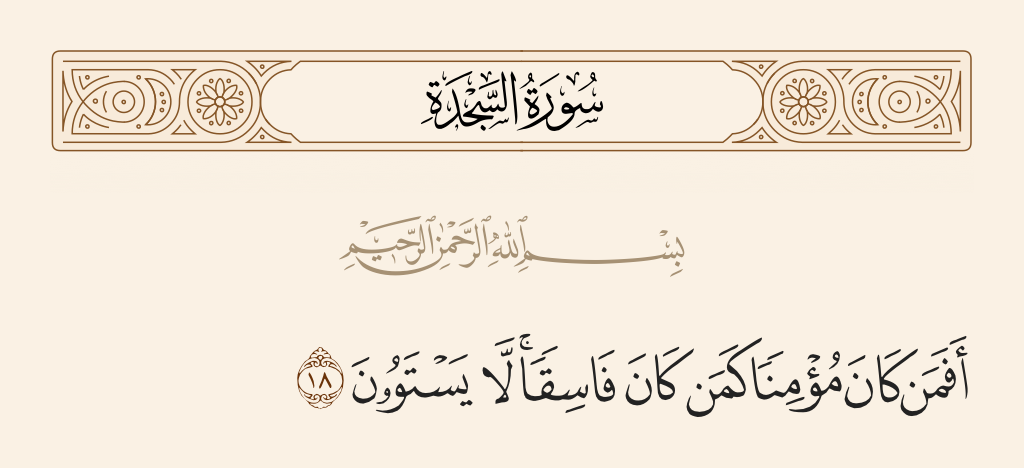 سُورَةُ السَّجْدَةِ
بِسْمِ ٱللَّهِ ٱلرَّحْمَٰنِ ٱلرَّحِيمِ
أَفَمَن كَانَ مُؤْمِنًا كَمَن كَانَ فَاسِقًا ۚ لَّا يَسْتَوُۥنَ ١٨